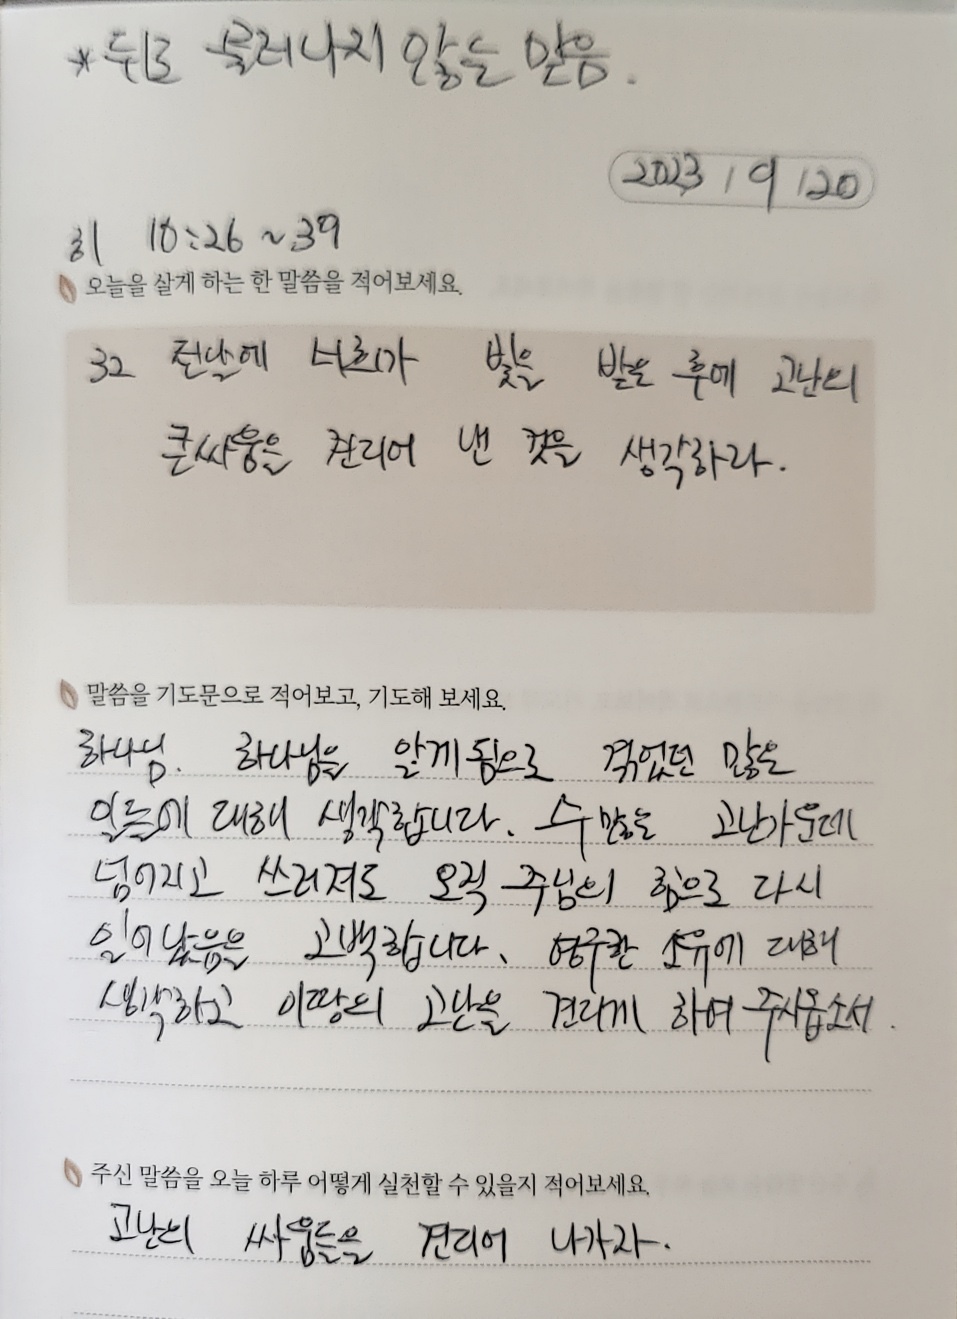 *뒤로 물러나지 않는 믿음.
2023 / 9 / 20
히 10:26 ~ 39
오늘을 살게 하는 한 말씀을 적어보세요.
32 전날에 너희가 빛을 받은 후에 고난의
큰싸움을 견디어 낸 것을 생각하라.
말씀을 기도문으로 적어보고, 기도해 보세요.
하나님. 하나님을 알게됨으로 겪었던 많은
일들에 대해 생각합니다. 수많은 고난가운데
넘어지고 쓰러져도 오직 주님의 힘으로 다시
일어났음을 고백합니다. 영구한 소유에 대해
생각하고 이땅의 고난을 견디게 하여 주시옵소서.
주신 말씀을 오늘 하루 어떻게 실천할 수 있을지 적어보세요.
고난의 싸움들을 견디어 나가자.